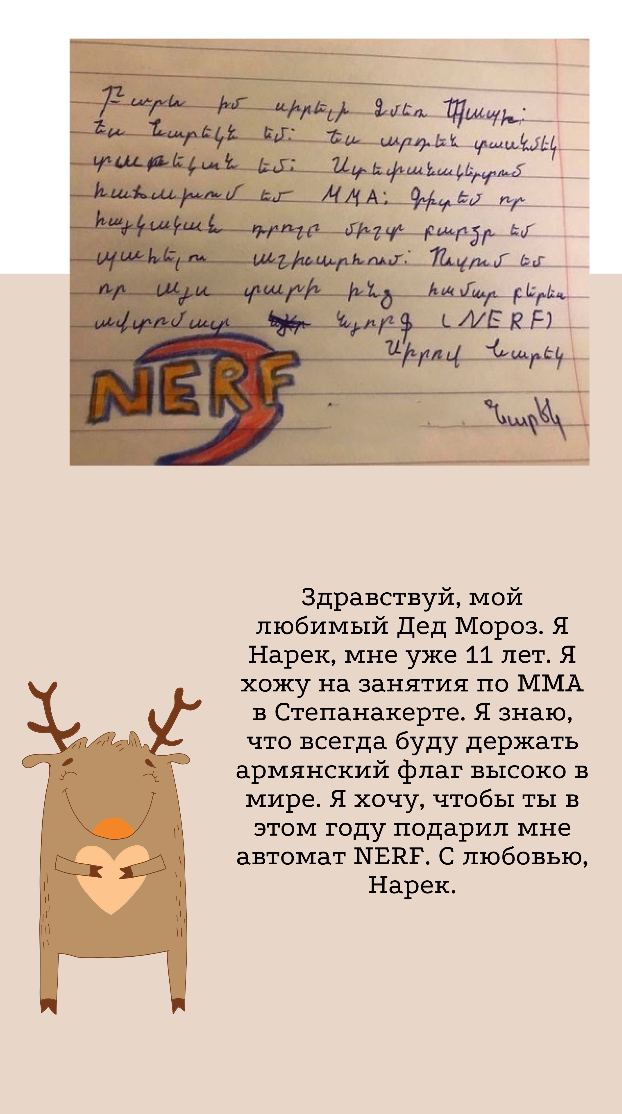 Բարև իմ սիրելի Ձմեռ Պապի:
Ես Նարեկն եմ: Ես արդեն տասնմեկ
տարեկան եմ: Ստեփանակերտում
հաճախում եմ MMA: Գիտեմ որ
հայկական դրոշը միշտ բարձր եմ
պահելու աշխարհում: Ուզում եմ
որ այս տարի ինձ համար բերես
ավտոմատ (NERF)
Սիրով Նարեկ
Նարեկ
NERF
Здравствуй, мой
любимый Дед Мороз. Я
Нарек, мне уже 11 лет. Я
хожу на занятия по ММА
в Степанакерте. Я знаю,
что всегда буду держать
армянский флаг высоко в
мире. Я хочу, чтобы ты в
этом году подарил мне
автомат NERF. С любовью,
Нарек.